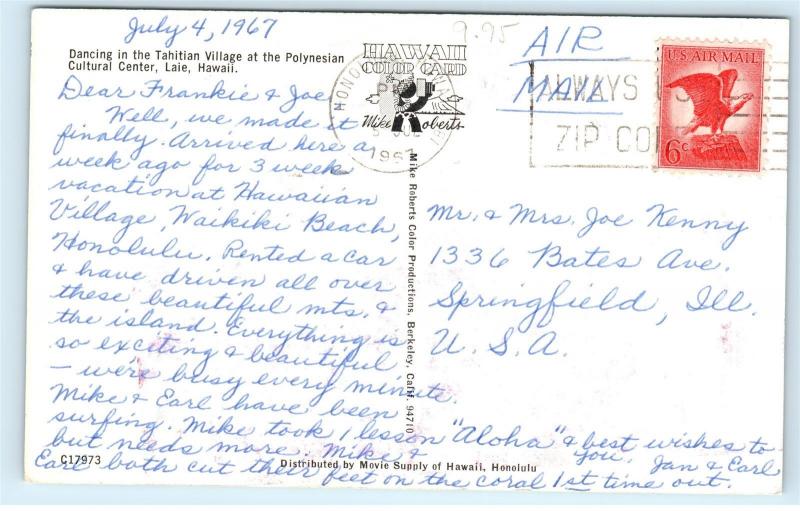 July 4, 1967
9.95
Dancing in the Tahitian Village at the Polynesian
Cultural Center, Laie, Hawaii.
HAWAII
COLOR CARD
Mike Roberts
HONO
PM
JUL
1967
AIR
MAIL
ALWAYS USE
ZIP CODE
U.S. AIR MAIL
6c
Dear Frankie & Joe
Well, we made it
finally. Arrived here a
week ago for 3 week
vacation at Hawaiian
Village, Waikiki Beach,
Honolulu. Rented a car
& have driven all over
these beautiful mts. &
the island. Everything is
so exciting & beautiful
– were busy every minute.
Mike & Earl have been
surfing. Mike took 1 lesson
but needs more. Mike &
Earl both cut their feet on the coral 1st time out.
"Aloha" & best wishes to
you, Jan & Earl
Mike Roberts Color Productions, Berkeley, Calif. 94710
Mr. & Mrs. Joe Kenny
1336 Bates Ave.
Springfield, Ill.
U. S. A.
C17973
Distributed by Movie Supply of Hawaii, Honolulu